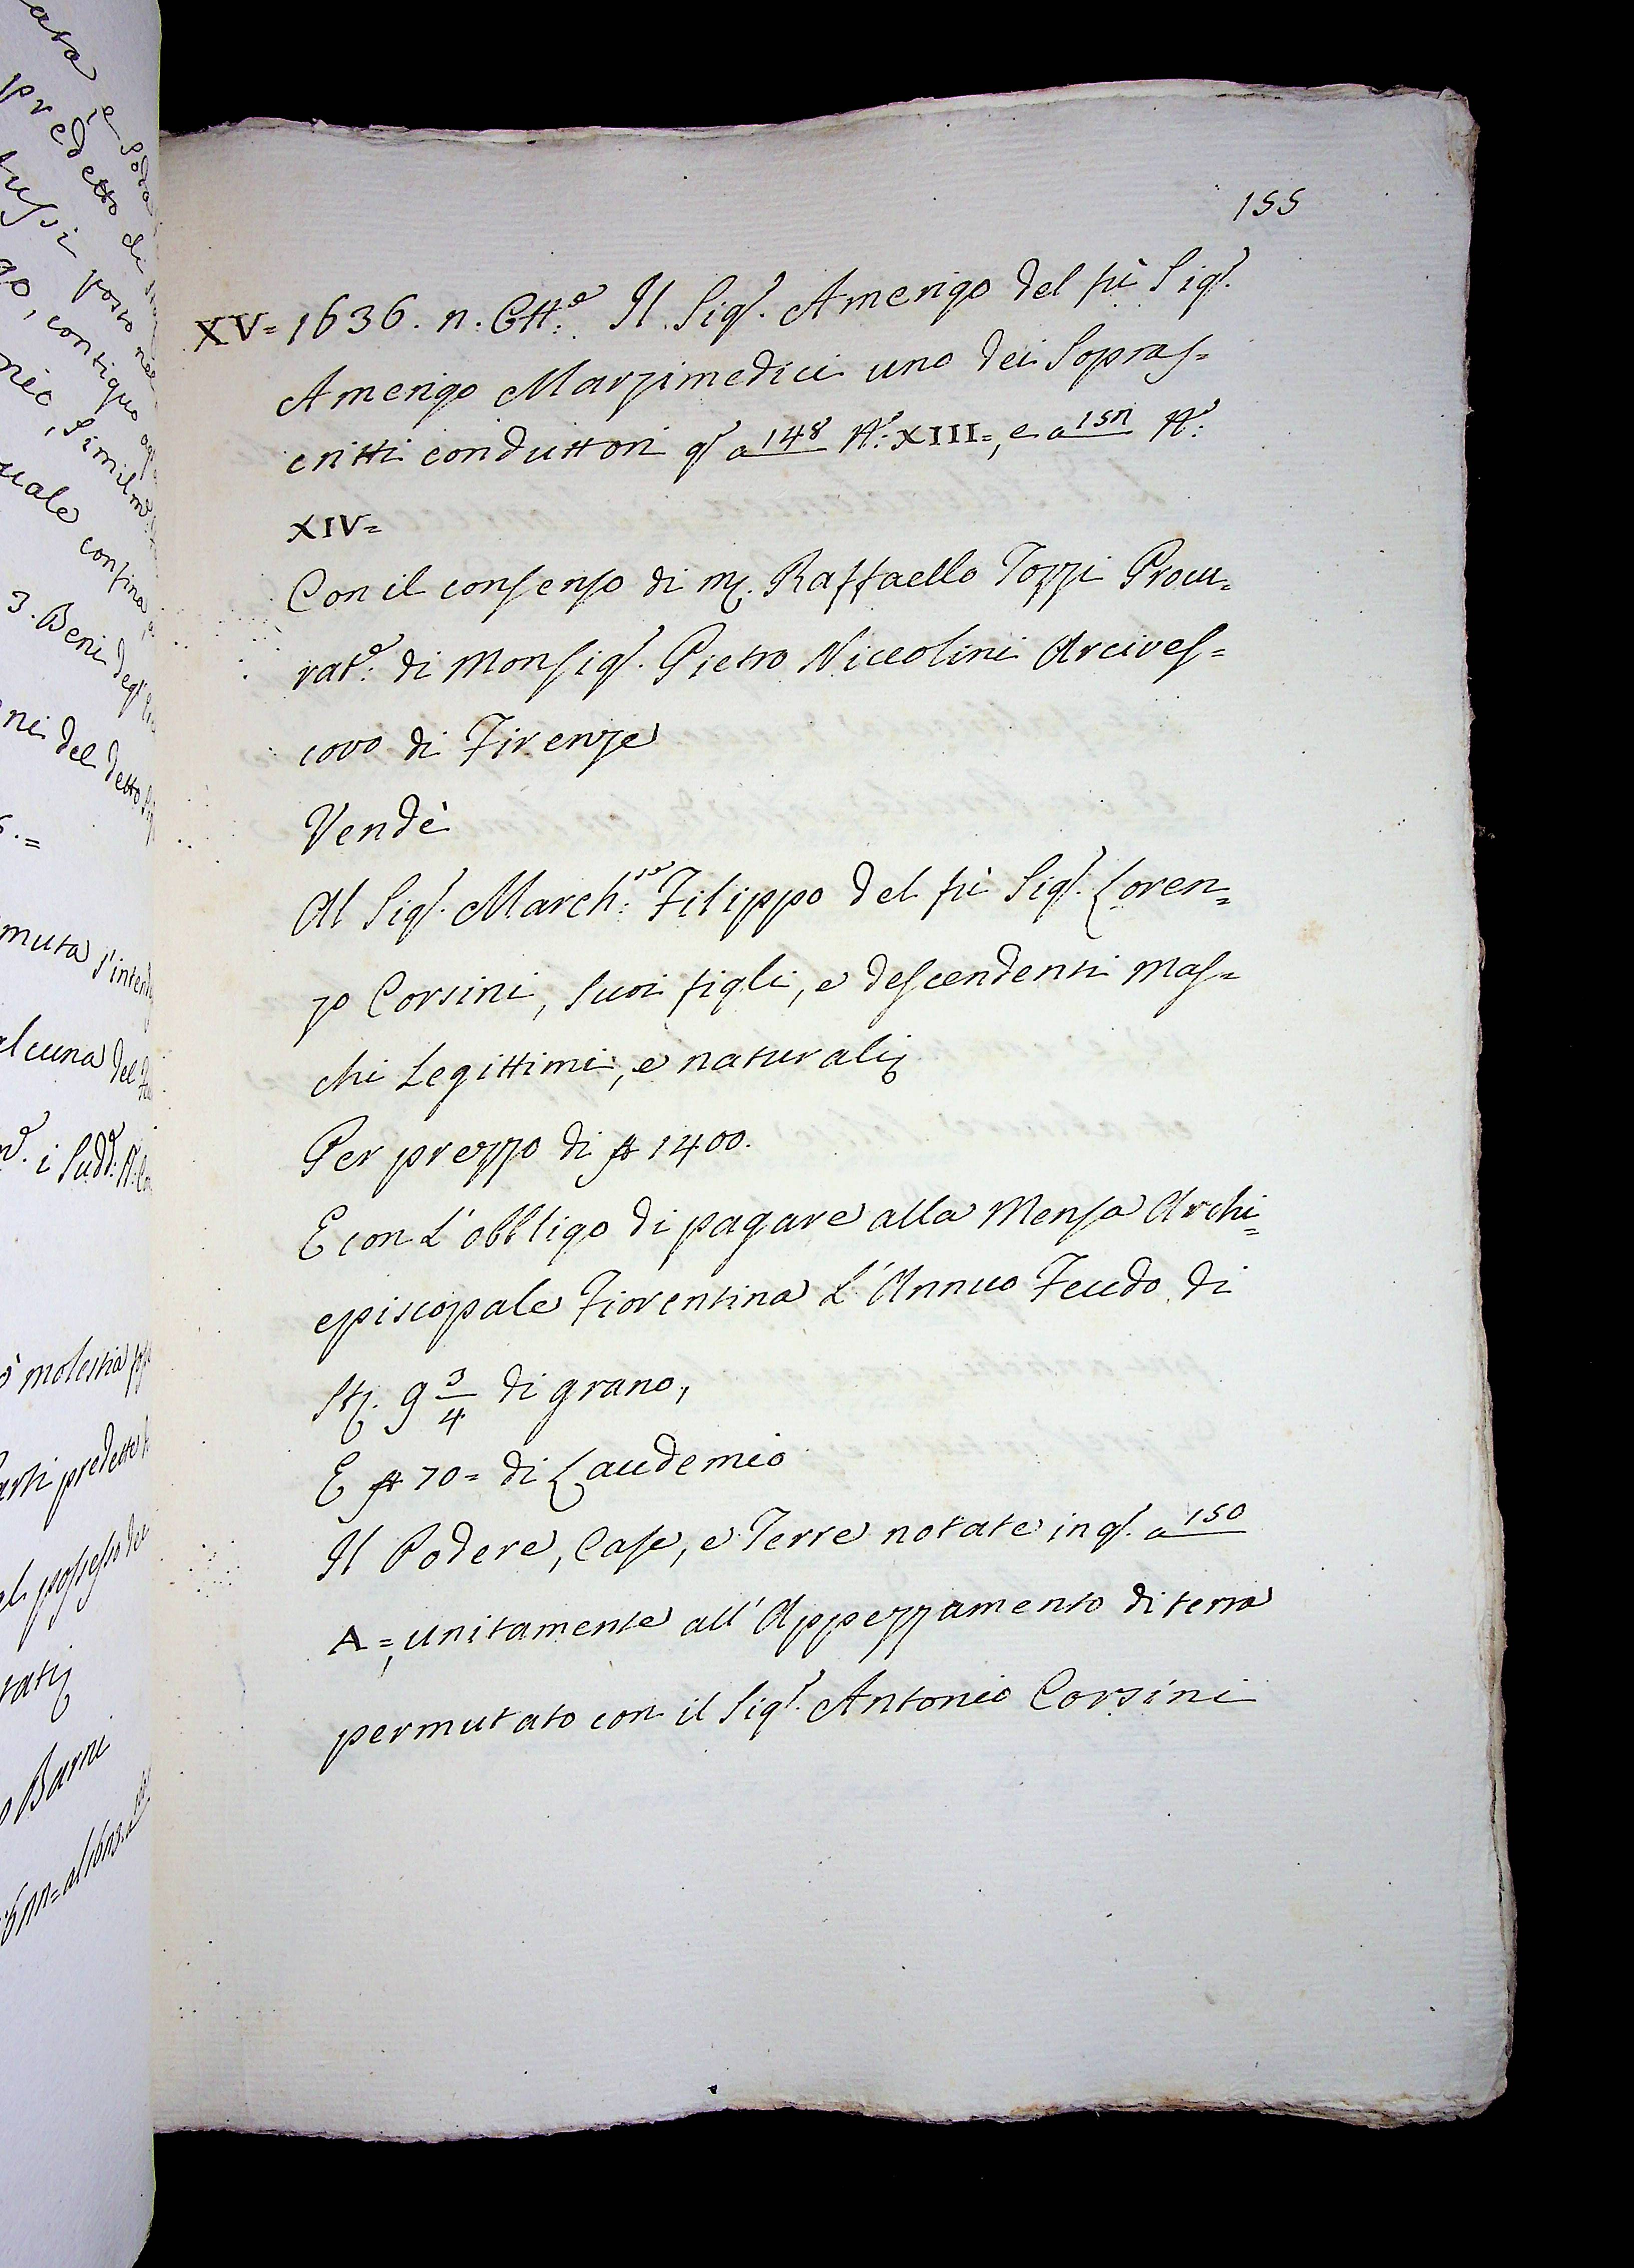 155
XV= 1636. n. Ott.e Il Sig.r Amerigo del fù Sig.r
Amerigo Marzimedici uno dei Sopras=
critti conduttori q.o a 148 N.o: XIII=, e a 152 N.o:
XIV=
Con il consenso di m. Raffaello Tozzi Procu=
rat.e: di Monsig.r Pietro Niccolini Arcives=
covo di Firenze
Vendè
Al Sig.r March:se Filippo del fù Sig.r Loren=
zo Corsini, suoi figli, e descendenti mas=
chi Legittimi, e naturali
Per prezzo di 1400.
E con L'obbligo di pagare alla Mensa Archi=
episcopale Fiorentina L'Annuo Feudo di
St. 9 3/4 di grano,
E 70= di Laudemio
Il Podere, Case, e Terre notate in q.o a 150
A=, unitamente all'Appezzamento di terra
permutato con il Sig.r Antonio Corsini